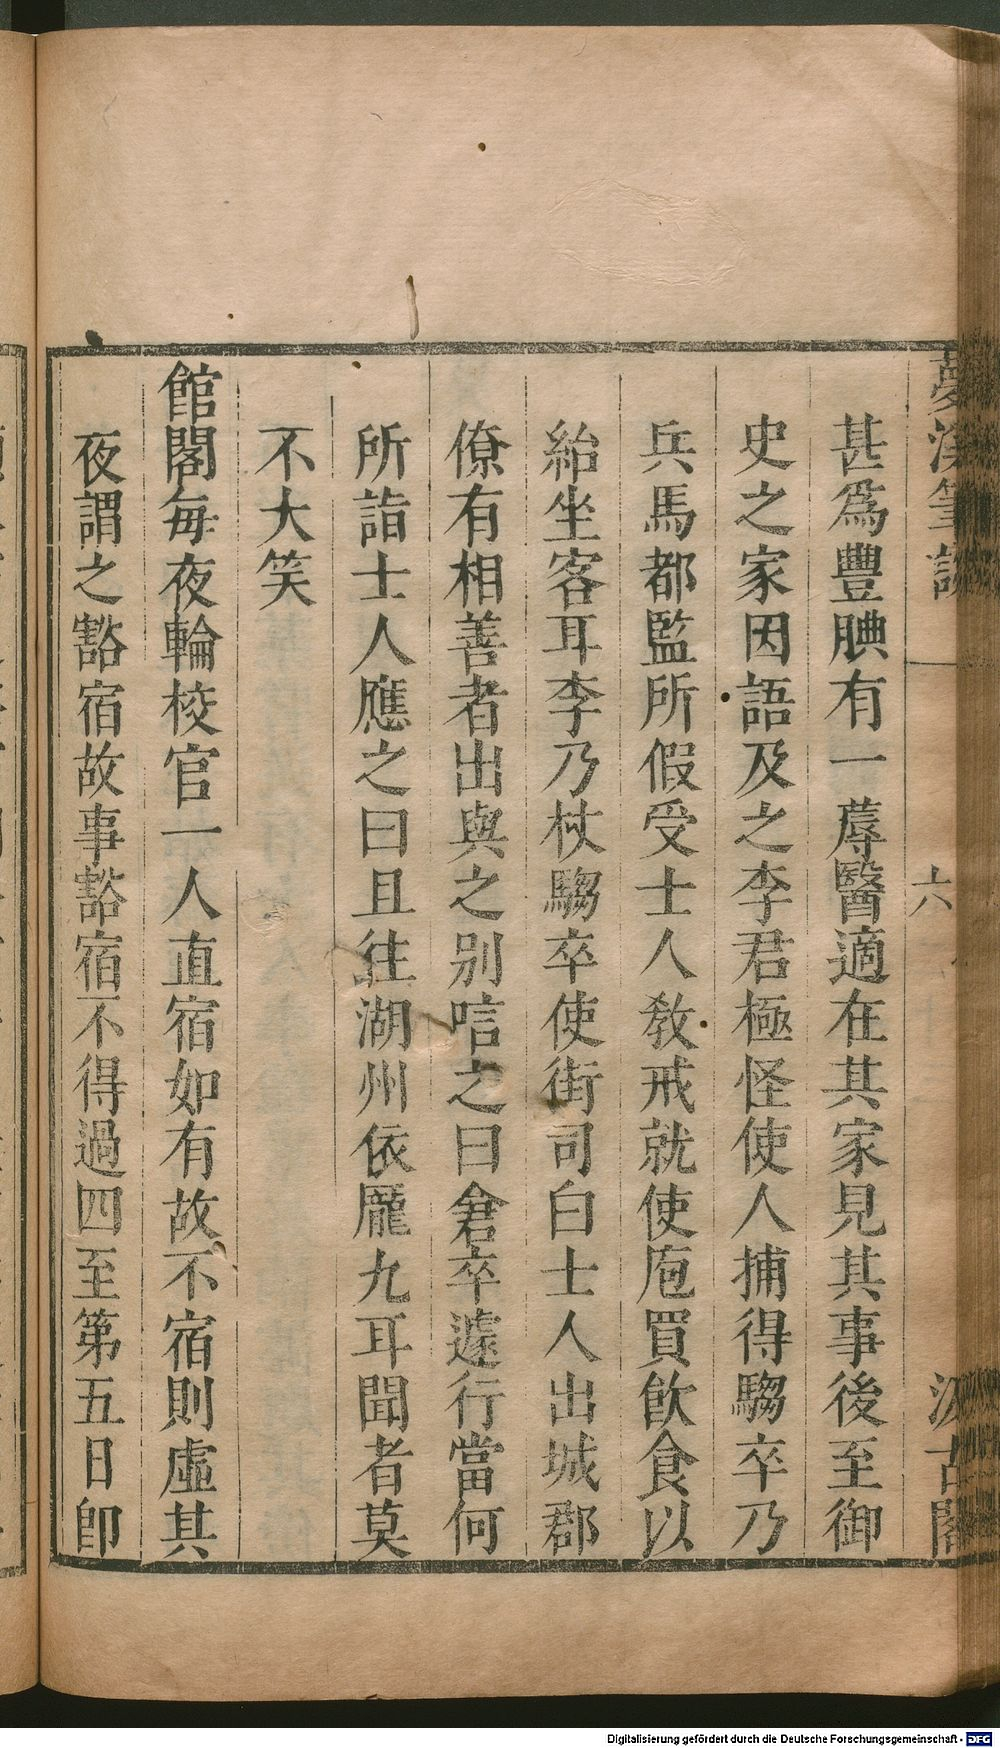 夢溪筆談
六
汲古閣
甚爲豐腆有一蓐醫適在其家見其事後至御
史之家因語及之李君極怪使人捕得騶卒乃
兵馬都監所假受士人敎戒就使庖買飮食以
紿坐客耳李乃杖騶卒使街司白士人出城郡
僚有相善者出與之别唁之曰倉卒遽行當何
所詣士人應之曰且往湖州依龐九耳聞者莫
不大笑
館閣每夜輪校官一人直宿如有故不宿則虛其
夜謂之豁宿故事豁宿不得過四至第五日卽
Digitalisierung gefördert durch die Deutsche Forschungsgemeinschaft - DFG